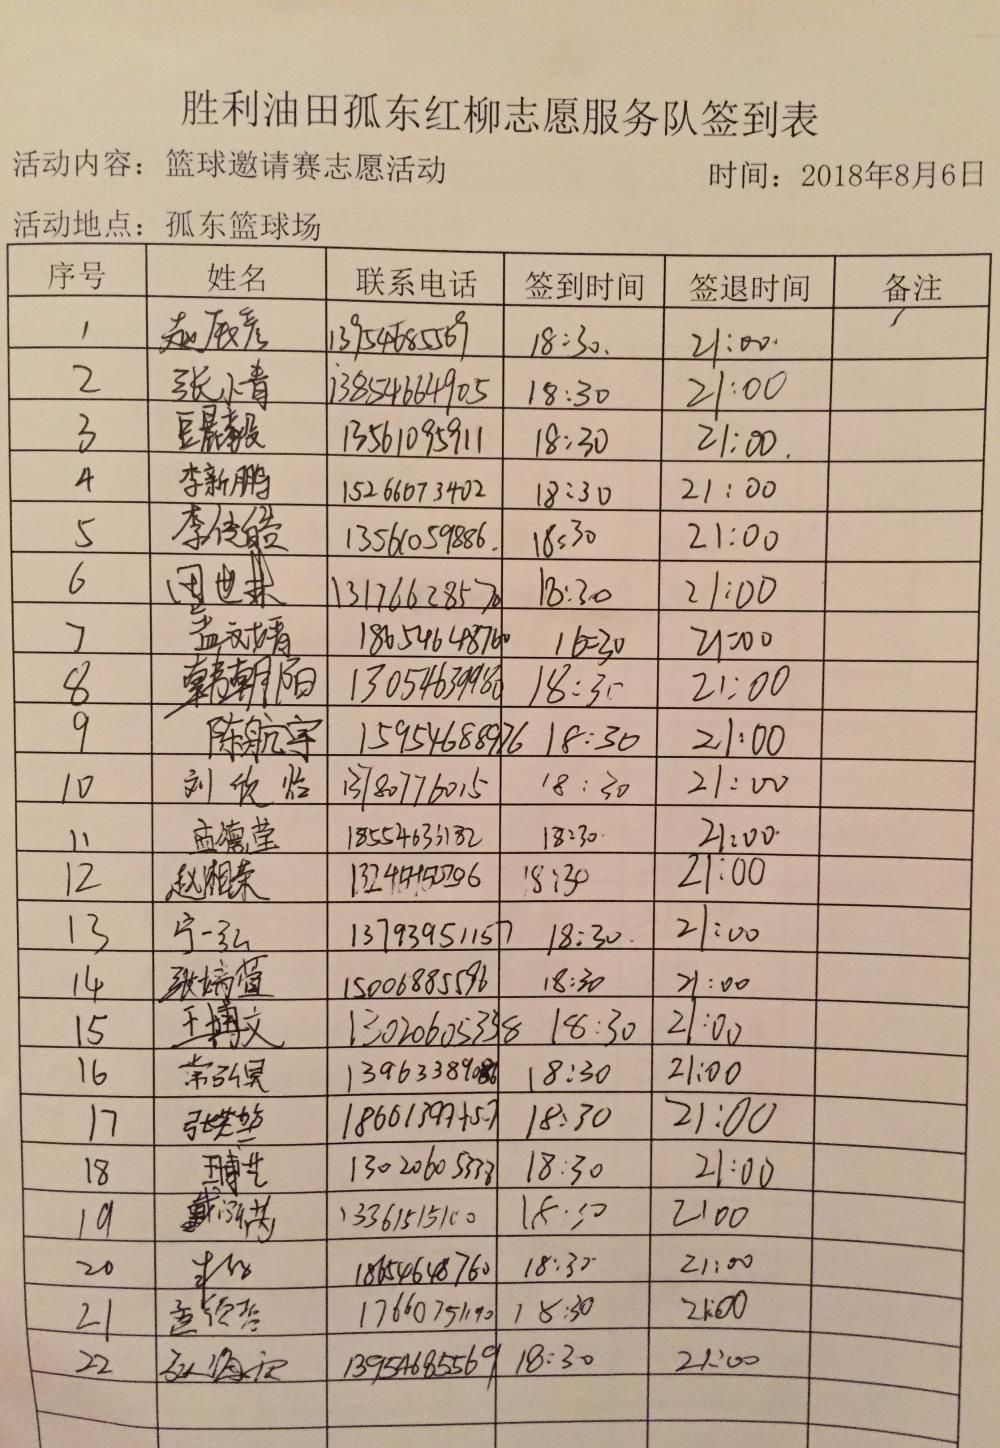 胜利油田孤东红柳志愿服务队签到表
活动内容：篮球邀请赛志愿活动 时间：2018年8月6日
活动地点：孤东篮球场
序号 姓名 联系电话 签到时间 签退时间 备注
1 13954685569 18:30. 21:00.
2 张小青 13854664905 18:30 21:00
3 13561095911 18:30 21:00.
4 李新鹏 15266073402 18:30 21:00
5 李传皓 13561059886. 18:30 21:00
6 周世林 13176628570 18:30 21:00
7 孟文婧 18654648760 18:30 21:00
8 韩朝阳 13054639980 18:30 21:00
9 陈航宇 15954688976 18:30 21:00
10 刘悦怡 13780776015 18:30 21:00
11 孟德莹 18554633182 18:30 21:00
12 赵湘荣 18:30 21:00
13 宁一弘 13793951157 18:30. 21:00
14 张婧萱 15006885596 18:30 21:00
15 王博文 13020605338 18:30 21:00
16 常弘昊 18:30 21:00
17 18:30 21:00
18 王博生 13020605338 18:30 21:00
19 13361515100 18:30 21:00
20 18654648760 18:30 21:00
21 17660751190 18:30 21:00
22 13954685569 18:30 21:00